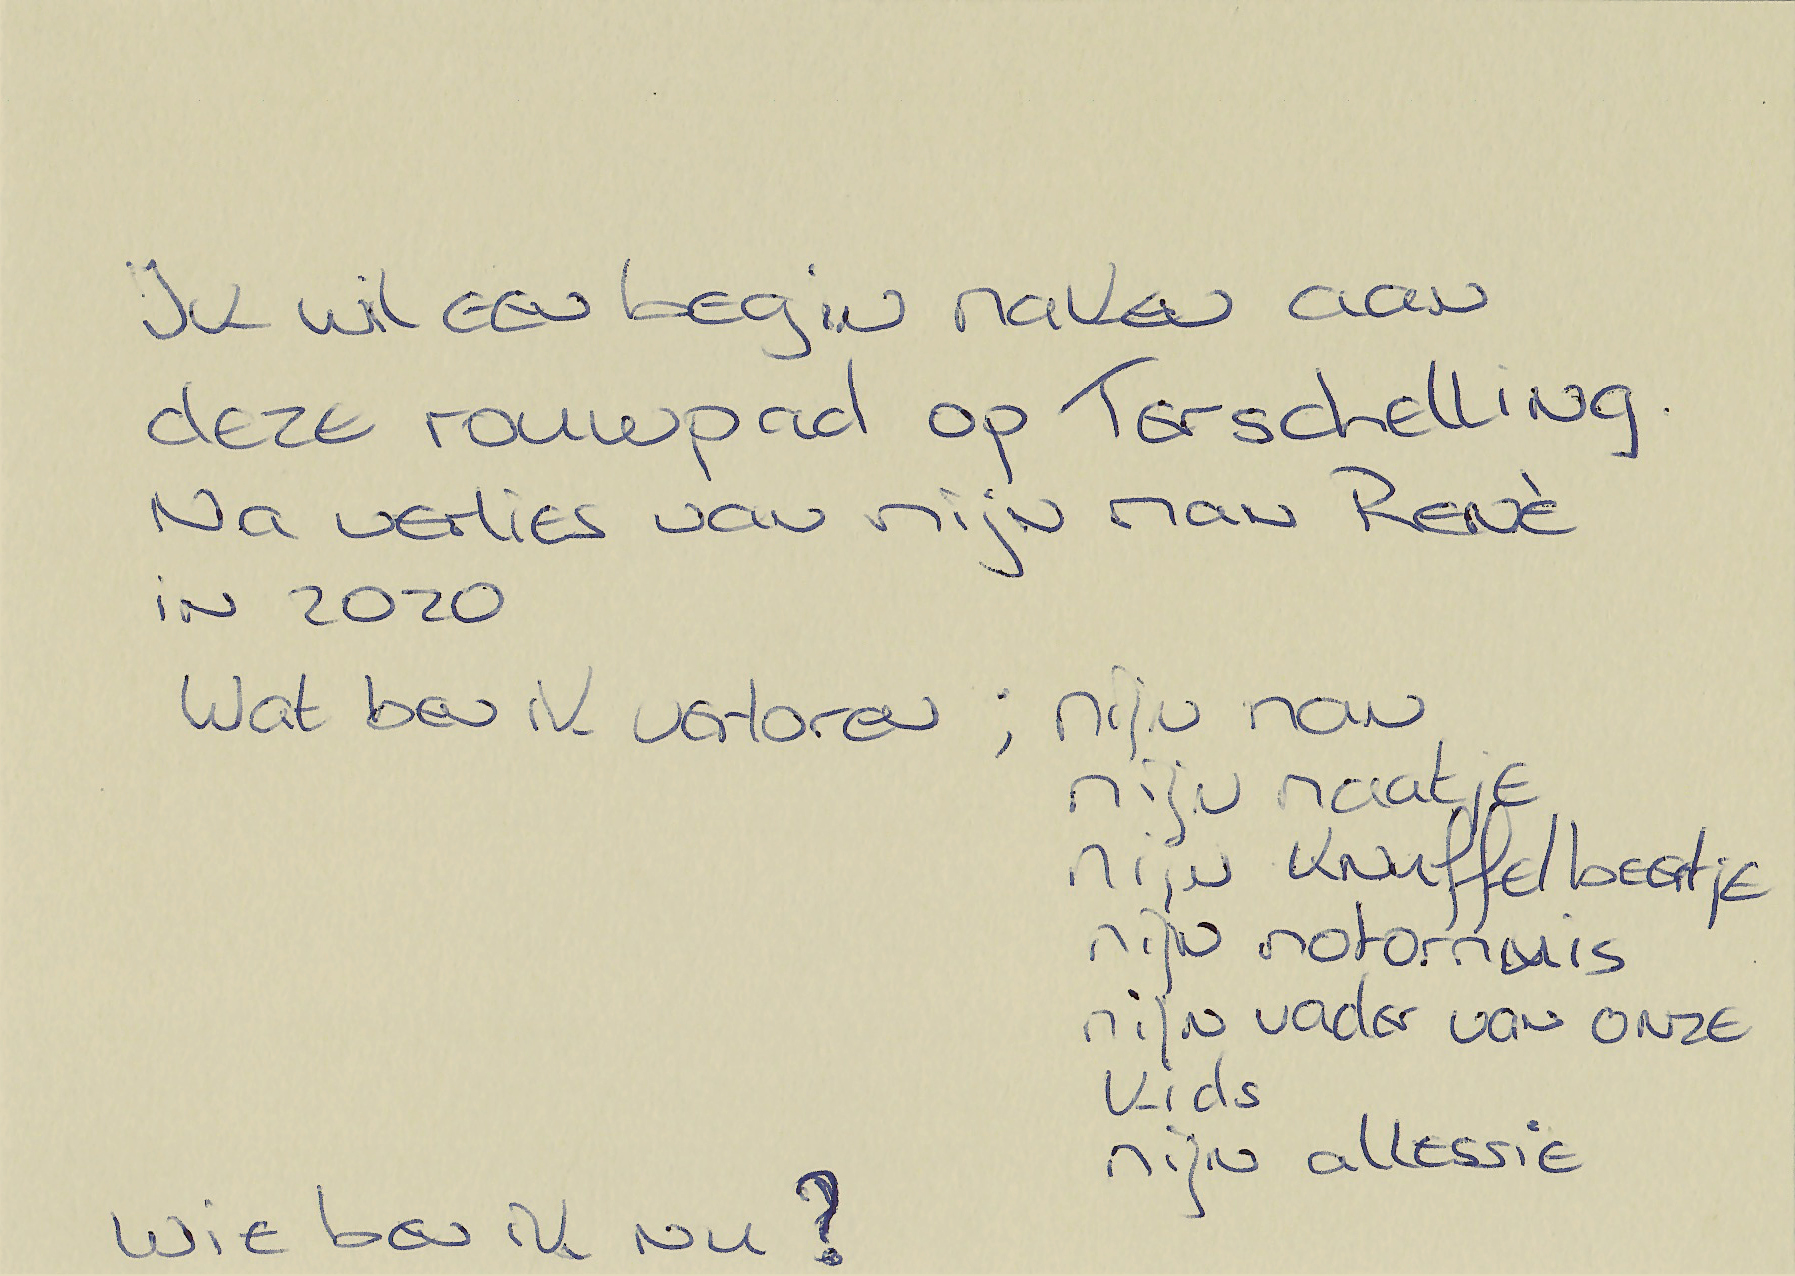 Ik wil een begin maken aan
deze rouwpad op Terschelling.
Na verlies van mijn man Renè
in 2020
Wat ben ik verloren ; mijn man
mijn maatje
mijn knuffelbeertje
mijn motormuis
mijn vader van onze
kids
mijn allessie
Wie ben ik nu ?